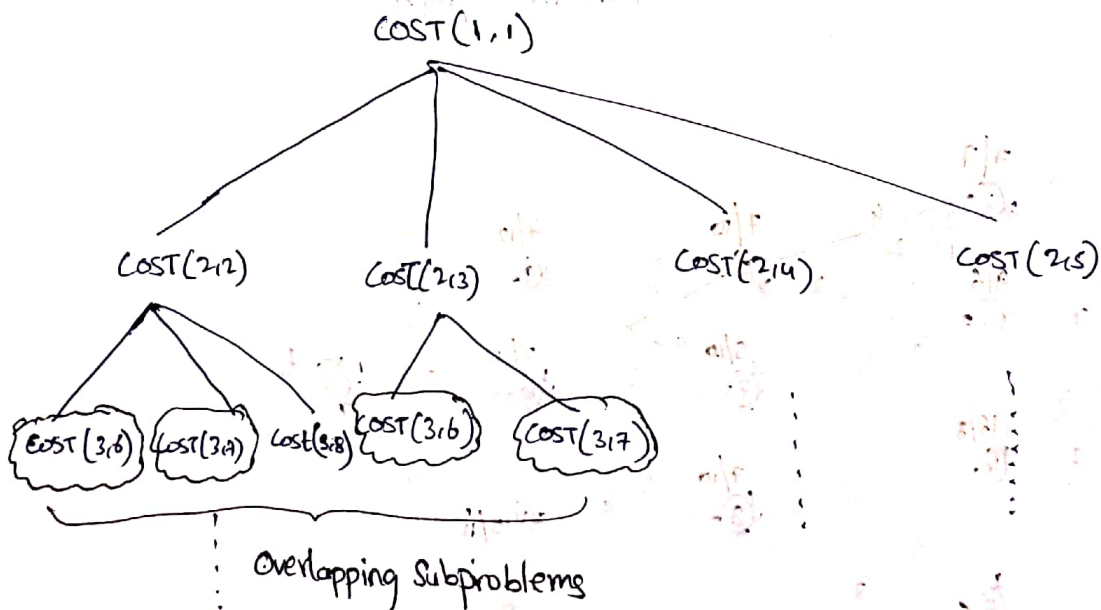 COST(1,1)
COST(2,2) COST(2,3) COST(2,4) COST(2,5)
COST(3,6) COST(3,7) COST(3,8) COST(3,6) COST(3,7)
Overlapping Subproblems